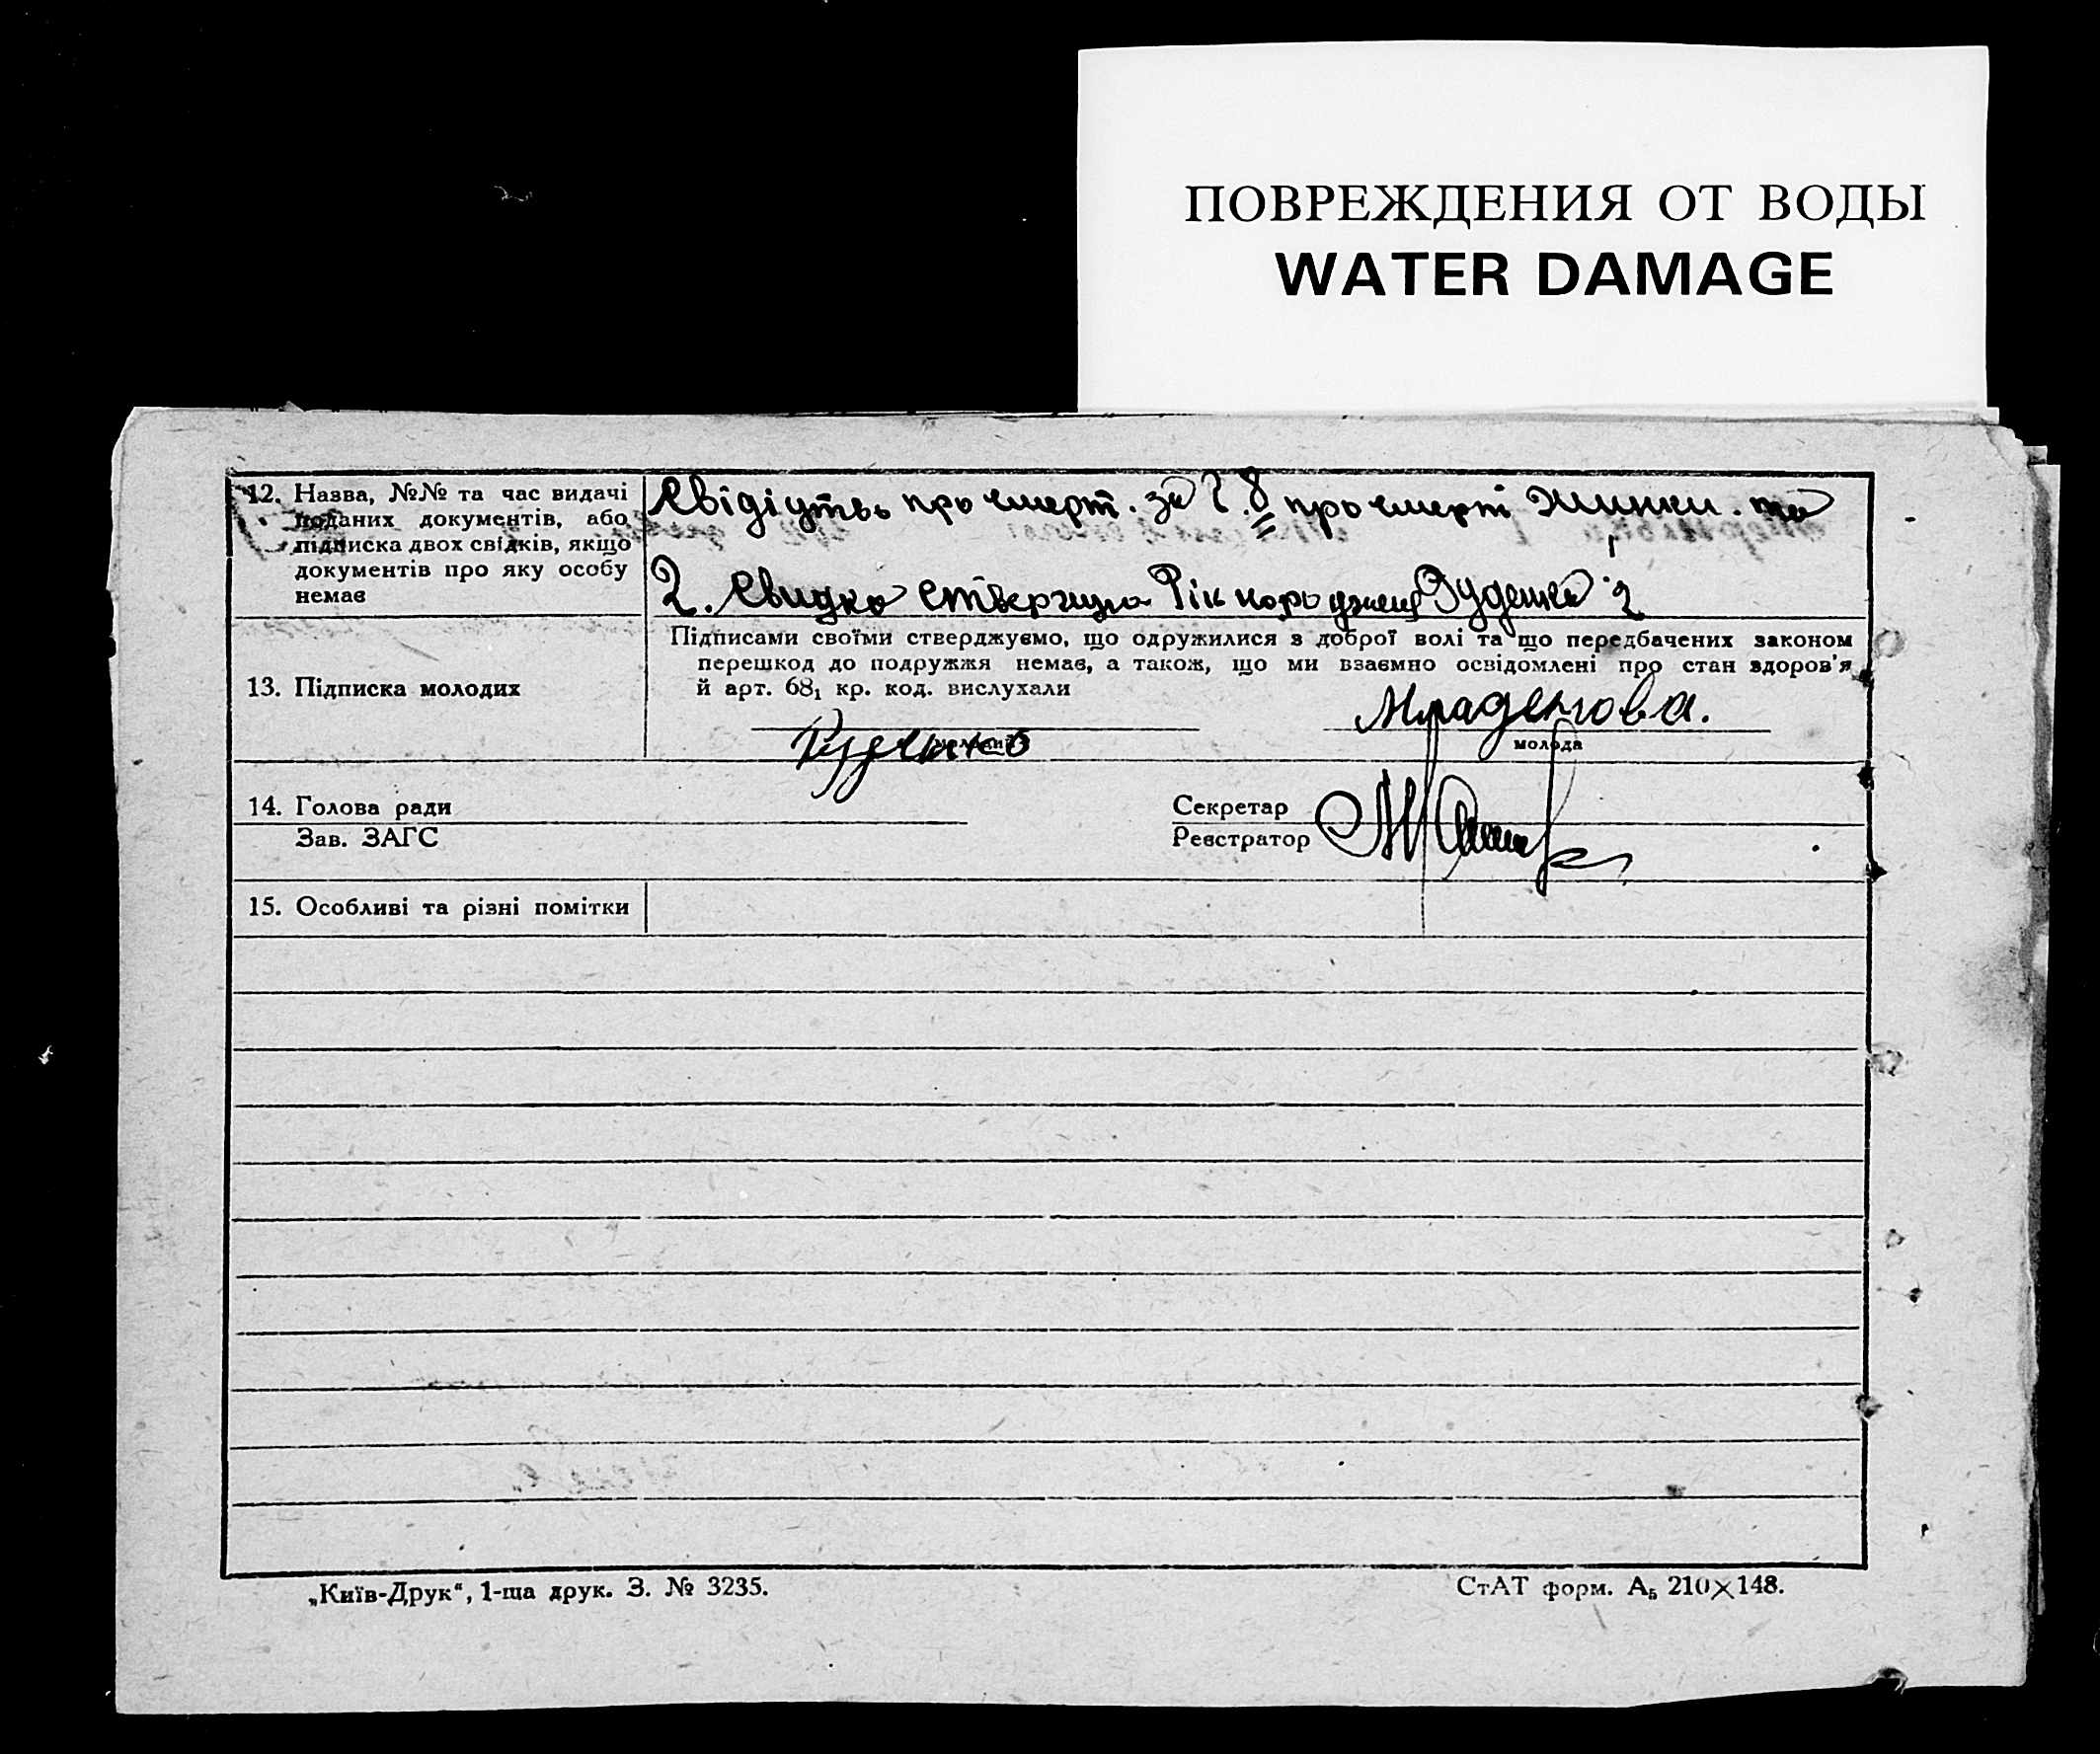 ПОВРЕЖДЕНИЯ ОТ ВОДЫ
WATER DAMAGE
12. Назва, №№ та час видачі
поданих документів, або
підписка двох свідків, якщо
документів про яку особу
немає
Свідіцтвь про смерт. за № 8 про смерт жинки. та
2. Свидка Рік
Підписами своїми стверджуємо, що одружилися з доброї волі та що передбачених законом
перешкод до подружжя немає, а також, що ми взаємно освідомлені про стан здоров'я
13. Підписка молодих
й арт. 68₁ кр. код. вислухали
Руденко
молодий
молода
14. Голова ради
Зав. ЗАГС
Секретар
Реєстратор
15. Особливі та різні помітки
„Київ-Друк“, 1-ша друк. З. № 3235.
СтАТ форм. А₅ 210×148.